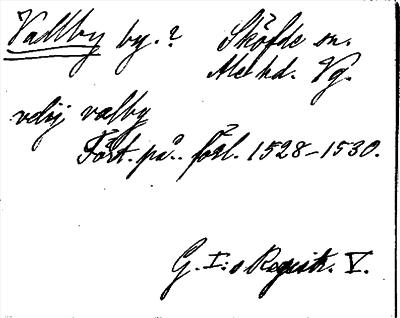 Vallby by.? Sköfde sn.
Ale hd. Vg.
velij valby
Fört. på.. förl. 1528-1530.
G. I:s Registr. V.